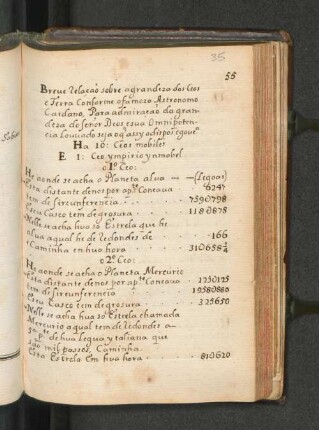 35
55
Breve Relação sobre a grandeza dos Ceos
e Terra Conforme o famozo Astronomo
Cardano, Para admiração da gran-
deza do señor Deos e sua Omnipoten-
cia Louvado seja
Ha 10: Céos mobiles
E 1: Ceo ympirio ynmobel
o 1º Ceo:
He aonde se acha o Planeta alua — (Legoas)
Esta distante de nos por apte Concava 6247
tem de Circunferencia 7590798
Este Casco tem de grosura 1180878
Nelle se acha hua só Estrela que he
alua aqual he de Redondes de 166
Caminha en hua hora 310658¾
o 2º Ceo:
He aonde se acha o Planeta Mercurio
Esta distante denos por apte Concava 1250125
tem de sircunferencia 19580880
Este Casco tem de grosura 325650
Nelle se acha hua só Estrela chamada
Mercurio aqual tem de Redondes a
pte de hua Legua ytaliana que
são mil passos, Caminha
Esta Estrela Em hua hora 810620